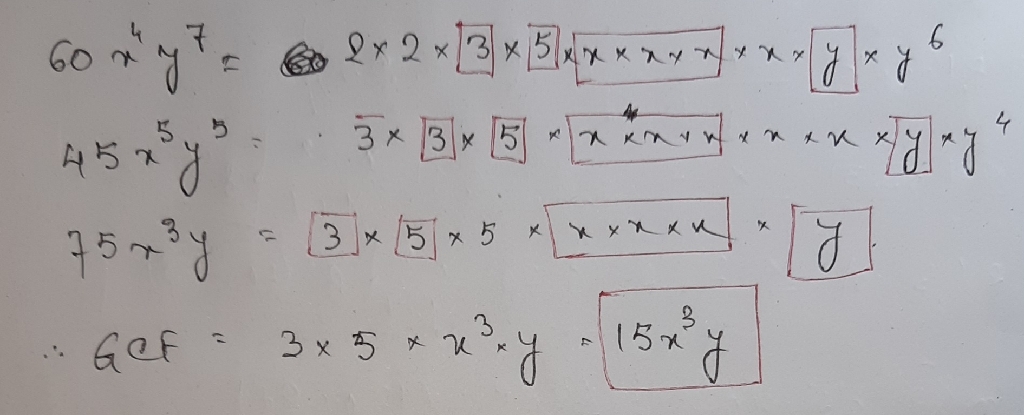 60x⁴y⁷ = 2 × 2 × 3 × 5 × x × x × x × x × y × y⁶
45x⁵y⁵ = 3 × 3 × 5 × x × x × x × x × x × y × y⁴
75x³y = 3 × 5 × 5 × x × x × x × y
∴ GCF = 3 × 5 × x³ × y = 15x³y